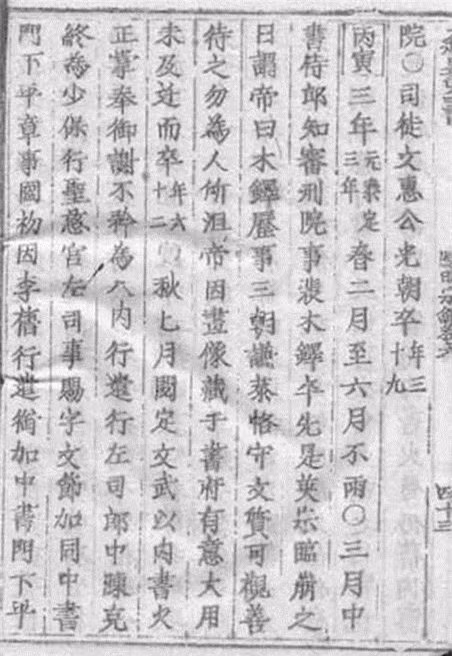 四十三
院〇司徒文惠公光朝卒年三十九
丙寅三年元泰定三年春二月至六月不雨〇三月中
書侍郎知審刑院事裴木鐸卒先是英宗臨崩之
日謂帝曰木鐸歷事三朝謙恭恪守文質可觀善
待之勿為人所沮帝因畫像藏于書府有意大用
未及近而卒年六十二秋七月閱定文武以內書火
正掌奉御謝不矜為入內行遣行左司郎中陳克
終為少保行聖慈宮左司事賜字文節加同中書
門下平章事國初因李舊行遣銜加中書門下平